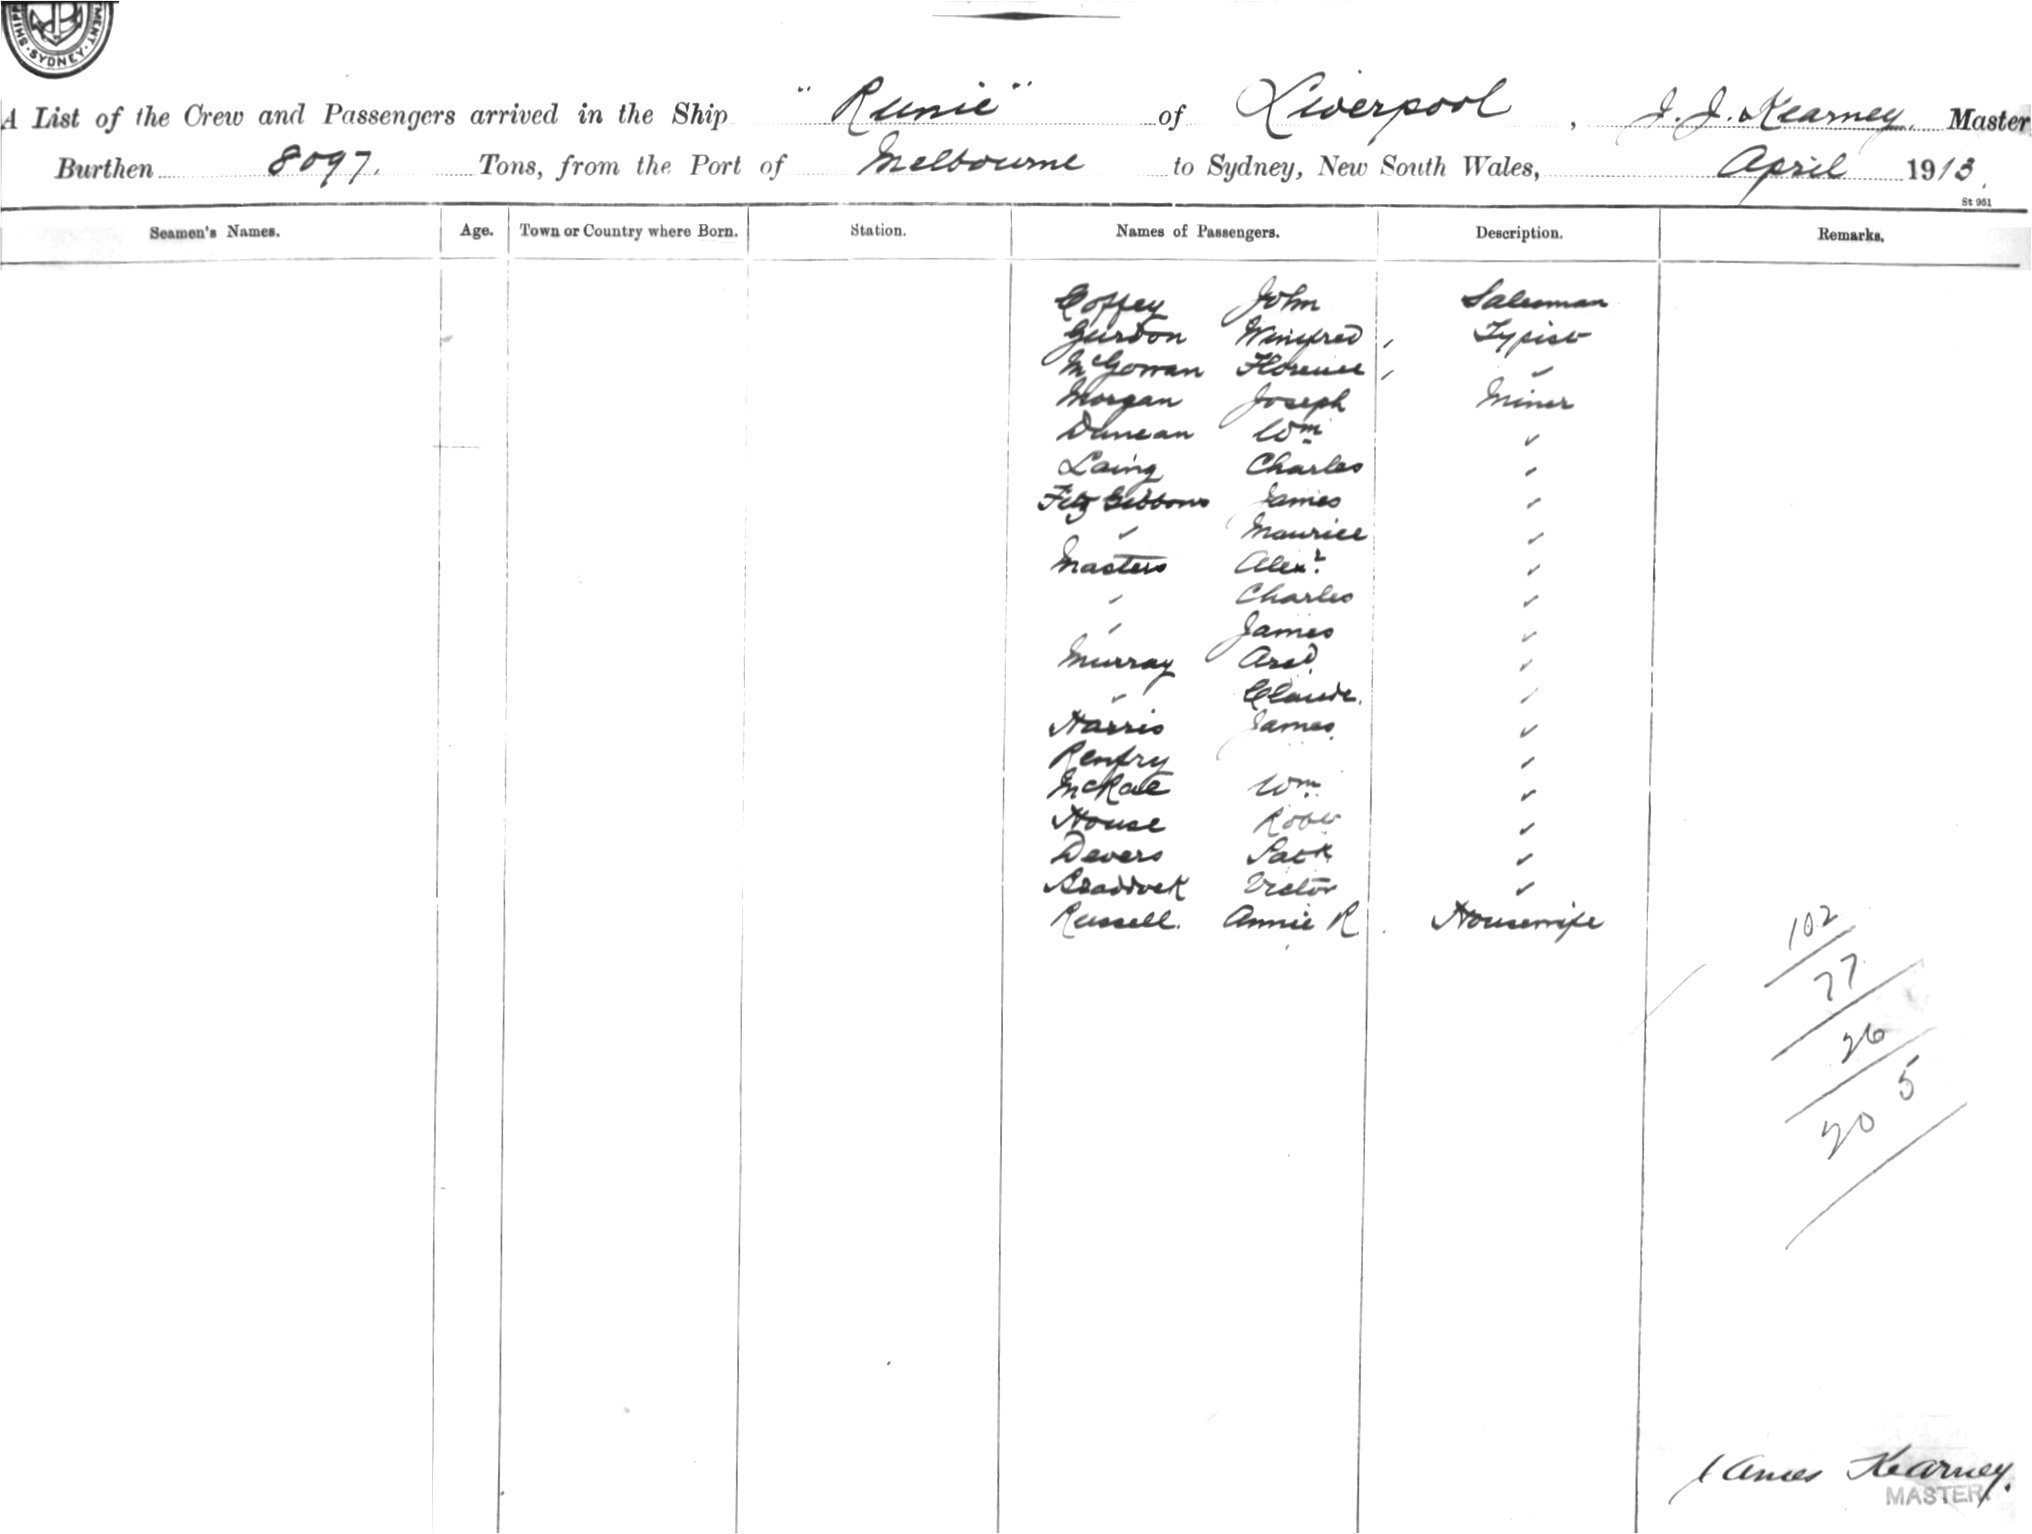 MENT · SYDNEY · SHIPP
A List of the Crew and Passengers arrived in the Ship "Runic" of Liverpool, J. J. Kearney, Master
Burthen 8097. Tons, from the Port of Melbourne to Sydney, New South Wales, April 1913.
St 961
Seamen's Names. Age. Town or Country where Born. Station. Names of Passengers. Description. Remarks.
Coffey John Salesman
Gurdon Winifred, Typist
McGowan Florence, "
Morgan Joseph Miner
Duncan Wm "
Laing Charles "
FitzGibbons James "
" Maurice "
Masters Alexr "
" Charles "
" James "
Murray "
" Claude. "
Harris James. "
Renfry "
Wm "
House Robt "
Devers Patk "
Braddock Victor "
Russell. Annie R. Housewife
102
77
26
5
20
James Kearney.
MASTER.